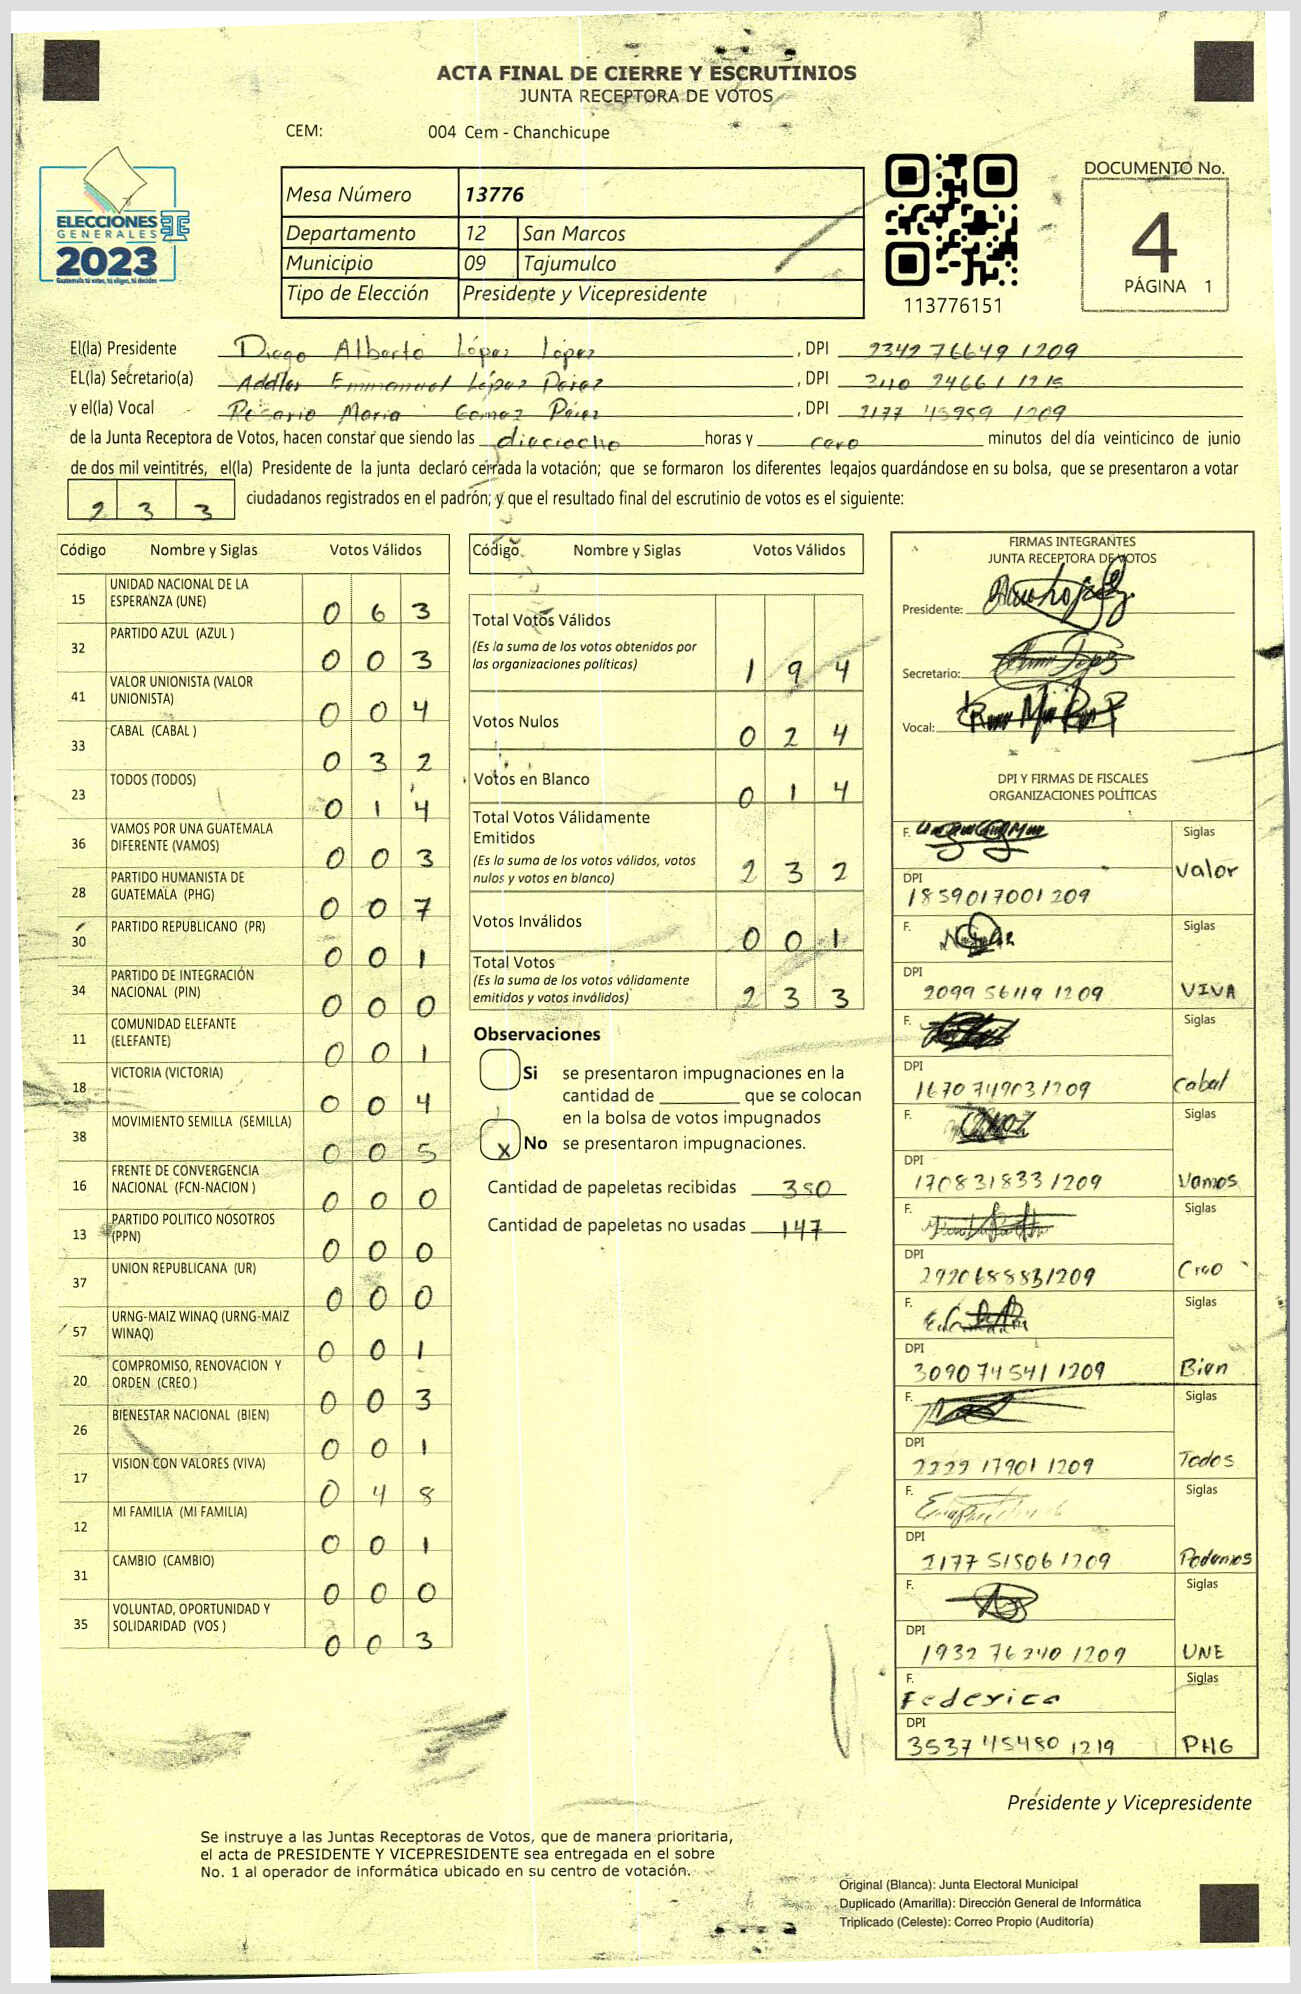 ACTA FINAL DE CIERRE Y ESCRUTINIOS
JUNTA RECEPTORA DE VOTOS
CEM: 004 Cem - Chanchicupe
ELECCIONES
GENERALES
2023
Guatemala tú votas, tú eliges, tú decides
Mesa Número 13776
Departamento 12 San Marcos
Municipio 09 Tajumulco
Tipo de Elección Presidente y Vicepresidente
113776151
DOCUMENTO No.
4
PÁGINA 1
El(la) Presidente Diego Alberto López López , DPI 2342 76649 1209
EL(la) Secretario(a) Addler Emmanuel López Pérez , DPI 3110 24661 1215
y el(la) Vocal Rosario Maria Gomez Pérez , DPI 2177 43959 1209
de la Junta Receptora de Votos, hacen constar que siendo las dieciocho horas y cero minutos del día veinticinco de junio
de dos mil veintitrés, el(la) Presidente de la junta declaró cerrada la votación; que se formaron los diferentes legajos guardándose en su bolsa, que se presentaron a votar
2 3 3 ciudadanos registrados en el padrón; y que el resultado final del escrutinio de votos es el siguiente:
Código Nombre y Siglas Votos Válidos
15 UNIDAD NACIONAL DE LA ESPERANZA (UNE) 0 6 3
32 PARTIDO AZUL (AZUL ) 0 0 3
41 VALOR UNIONISTA (VALOR UNIONISTA) 0 0 4
33 CABAL (CABAL ) 0 3 2
23 TODOS (TODOS) 0 1 4
36 VAMOS POR UNA GUATEMALA DIFERENTE (VAMOS) 0 0 3
28 PARTIDO HUMANISTA DE GUATEMALA (PHG) 0 0 7
30 PARTIDO REPUBLICANO (PR) 0 0 1
34 PARTIDO DE INTEGRACIÓN NACIONAL (PIN) 0 0 0
11 COMUNIDAD ELEFANTE (ELEFANTE) 0 0 1
18 VICTORIA (VICTORIA) 0 0 4
38 MOVIMIENTO SEMILLA (SEMILLA) 0 0 5
16 FRENTE DE CONVERGENCIA NACIONAL (FCN-NACION ) 0 0 0
13 PARTIDO POLITICO NOSOTROS (PPN) 0 0 0
37 UNION REPUBLICANA (UR) 0 0 0
57 URNG-MAIZ WINAQ (URNG-MAIZ WINAQ) 0 0 1
20 COMPROMISO, RENOVACION Y ORDEN (CREO ) 0 0 3
26 BIENESTAR NACIONAL (BIEN) 0 0 1
17 VISION CON VALORES (VIVA) 0 4 8
12 MI FAMILIA (MI FAMILIA) 0 0 1
31 CAMBIO (CAMBIO) 0 0 0
35 VOLUNTAD, OPORTUNIDAD Y SOLIDARIDAD (VOS ) 0 0 3
Código Nombre y Siglas Votos Válidos
Total Votos Válidos
(Es la suma de los votos obtenidos por
las organizaciones políticas) 1 9 4
Votos Nulos 0 2 4
Votos en Blanco 0 1 4
Total Votos Válidamente
Emitidos
(Es la suma de los votos válidos, votos
nulos y votos en blanco) 2 3 2
Votos Inválidos 0 0 1
Total Votos
(Es la suma de los votos válidamente
emitidos y votos inválidos) 2 3 3
Observaciones
Si se presentaron impugnaciones en la
cantidad de ________ que se colocan
en la bolsa de votos impugnados
x No se presentaron impugnaciones.
Cantidad de papeletas recibidas 380
Cantidad de papeletas no usadas 147
FIRMAS INTEGRANTES
JUNTA RECEPTORA DE VOTOS
Presidente:
Secretario:
Vocal:
DPI Y FIRMAS DE FISCALES
ORGANIZACIONES POLÍTICAS
F. Siglas
DPI Valor
1859017001209
F. Siglas
DPI
2099 56119 1209 VIVA
F. Siglas
DPI
1670749031209 Cabal
F. Siglas
DPI
1708318331209 Vamos
F. Siglas
DPI
2920688831209 Creo
F. Siglas
DPI
3090 74541 1209 Bien
F. Siglas
DPI
2229 17901 1209 Todos
F. Siglas
DPI
2177 51506 1209 Podemos
F. Siglas
DPI
1932 76240 1209 UNE
F. Siglas
Federico
DPI
3537 45480 1219 PHG
Presidente y Vicepresidente
Se instruye a las Juntas Receptoras de Votos, que de manera prioritaria,
el acta de PRESIDENTE Y VICEPRESIDENTE sea entregada en el sobre
No. 1 al operador de informática ubicado en su centro de votación.
Original (Blanca): Junta Electoral Municipal
Duplicado (Amarilla): Dirección General de Informática
Triplicado (Celeste): Correo Propio (Auditoría)